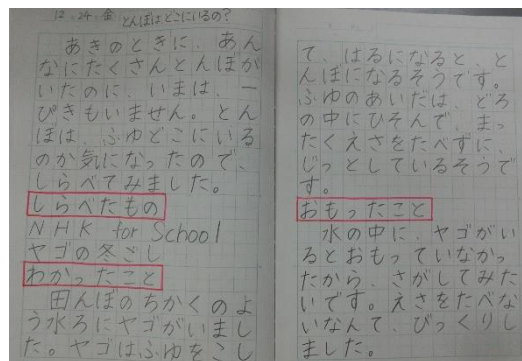 12・24・金 とんぼはどこにいるの?
あきのときに、あん
なにたくさんとんぼが
いたのに、いまは、一
ぴきもいません。とん
ぼは、ふゆどこにいる
のか気になったので、
しらべてみました。
しらべたもの
NHK for School
ヤゴの冬ごし
わかったこと
田んぼのちかくのよ
う水ろにヤゴがいまし
た。ヤゴはふゆをこし
て、はるになると、と
んぼになるそうです。
ふゆのあいだは、どろ
の中にひそんで、まっ
たくえさをたべずに、
じっとしているそうで
す。
おもったこと
水の中に、ヤゴがい
るとおもっていなかっ
たから、さがしてみた
いです。えさをたべな
いなんて、びっくりし
ました。